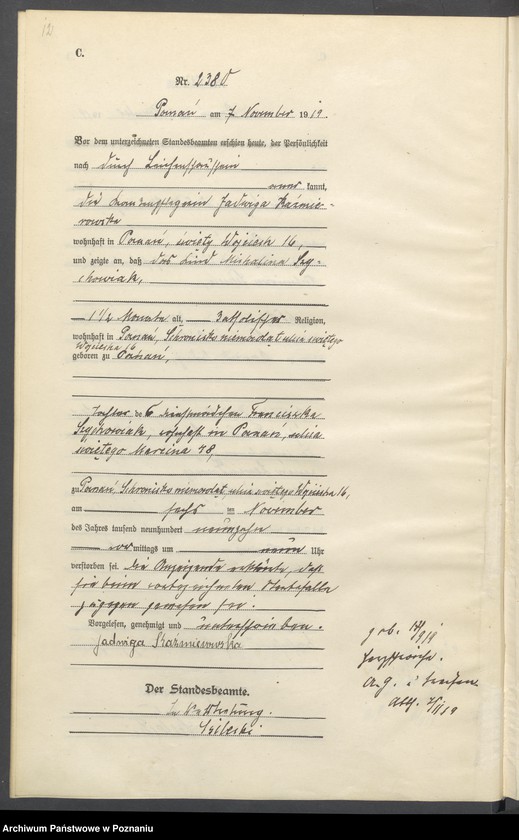 12
C.
Nr. 2380
Poznań am 7. November 1919.
Vor dem unterzeichneten Standesbeamten erschien heute, der Persönlichkeit
nach durch
kannt,
die Krankenpflegerin Jadwiga Kaźmie-
rowska
wohnhaft in Poznań, święty Wojciech 16,
und zeigte an, daß das Kind Michalina
chowiak,
1 1/2 Monate alt, katholischer Religion,
wohnhaft in Poznań, Schronisko niemowląt ulica świętego
Wojciecha 16
geboren zu Poznan,
Tochter des Dienstmädchen Franciszka
wohnhaft in Poznań, ulica
świętego Marcina 48,
zu Poznań, Schronisko niemowląt, ulica świętego Wojciecha 16,
am sechs ten November
des Jahres tausend neunhundert neunzehn
vormittags um neun Uhr
verstorben sei. Die Anzeigende erklärte, daß
sie beim vorbezeichneten Sterbefalle
zugegen gewesen sei.
Vorgelesen, genehmigt und unterschrieben.
Jadwiga Kaźmierowska
Der Standesbeamte.
In Vertretung.
geb.
Archiwum Państwowe w Poznaniu